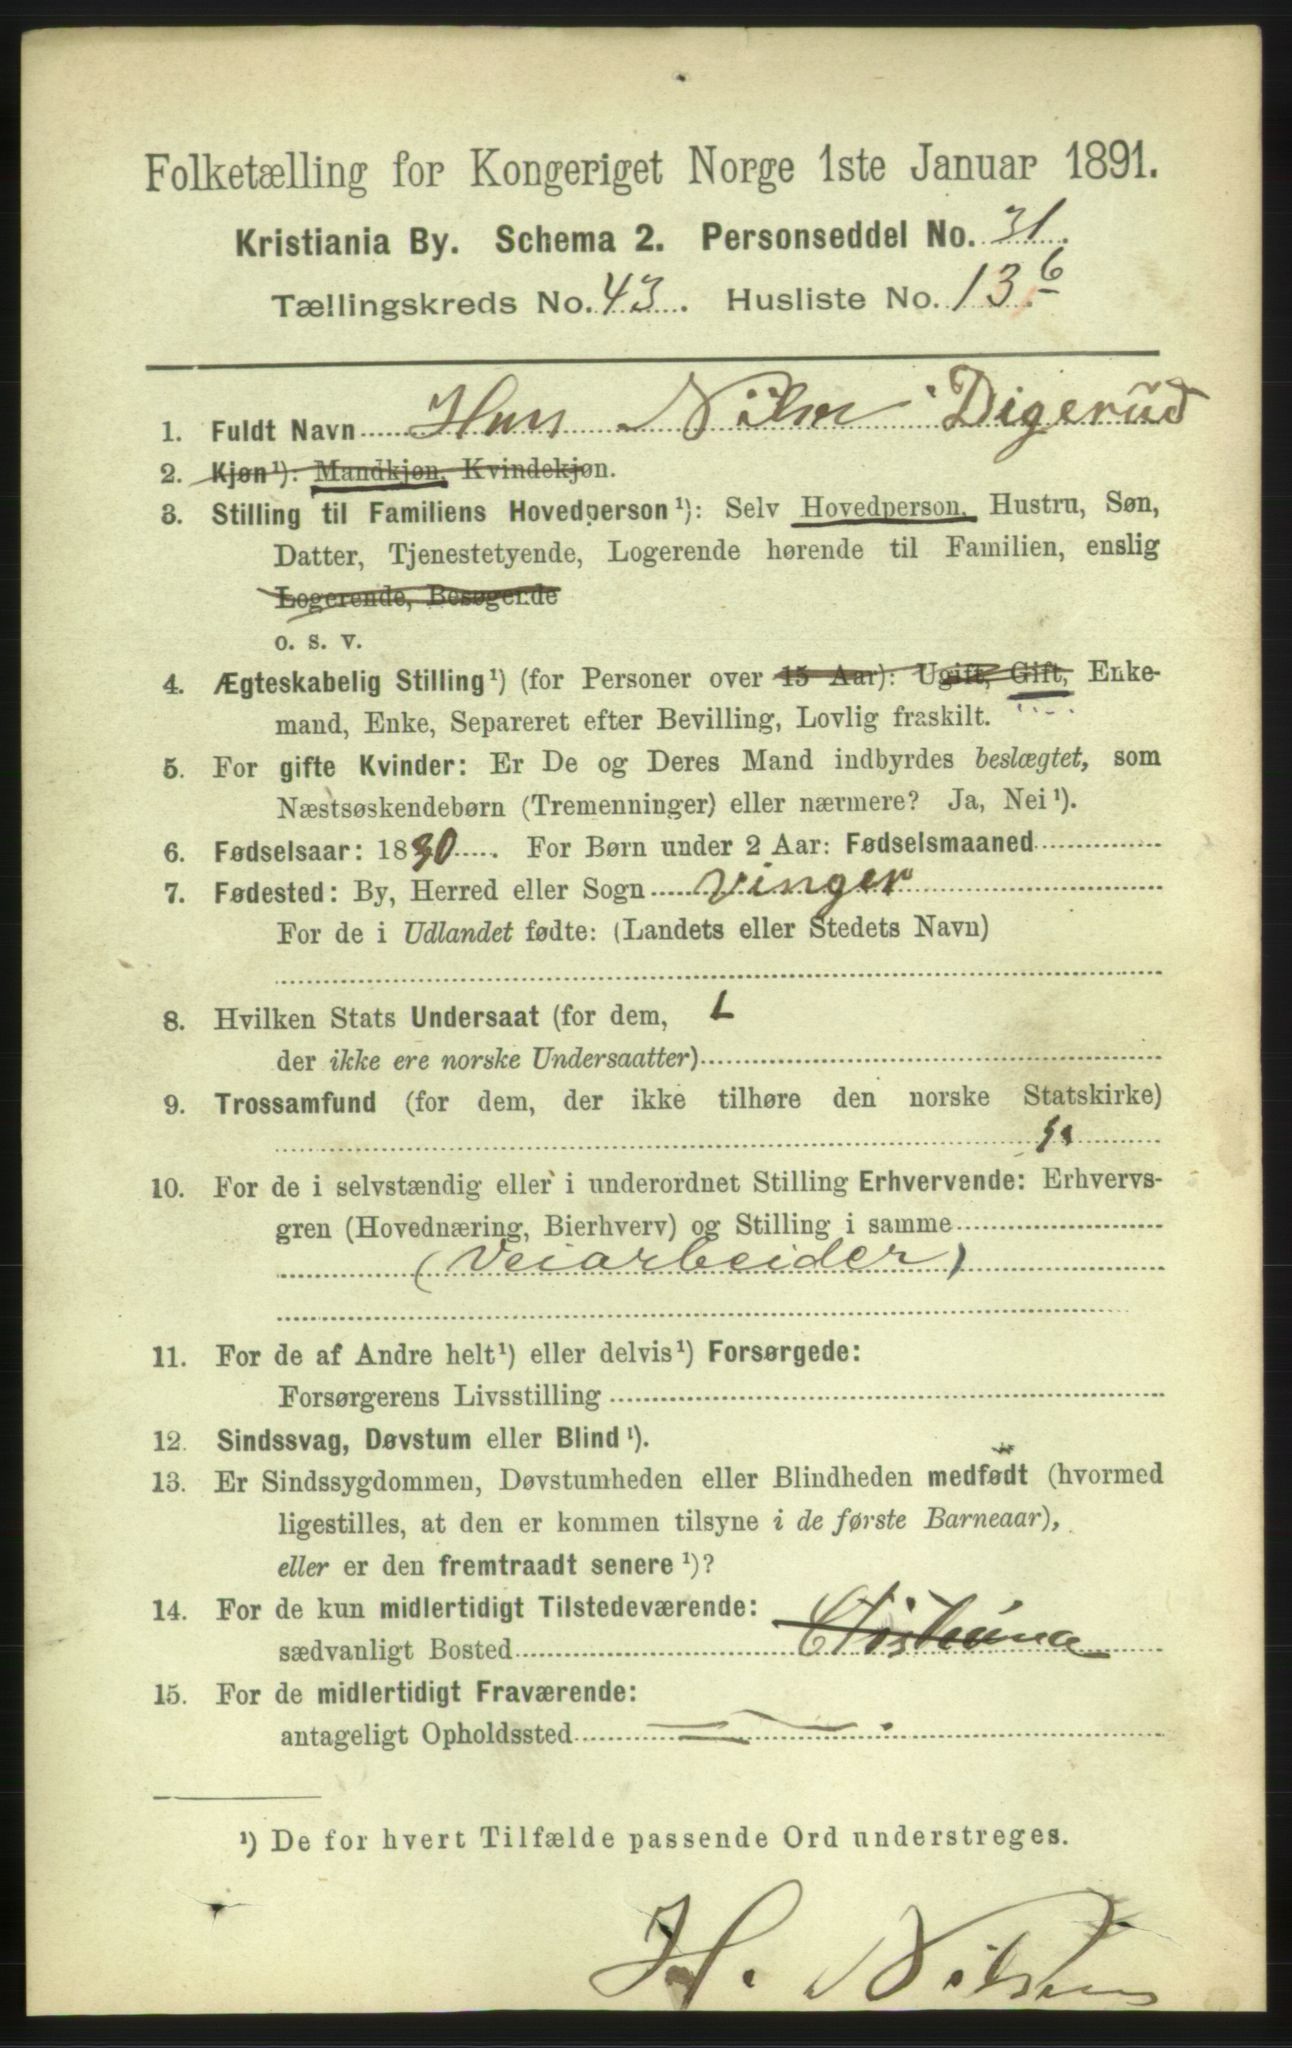 Folketælling for Kongeriget Norge 1ste Januar 1891.
Kristiania By. Schema 2. Personseddel No. 31.
Tællingskreds No. 43. Husliste No. 13.6
1. Fuldt Navn Digerud
2. Kjøn¹): Mandkjøn, Kvindekjøn.
3. Stilling til Familiens Hovedperson¹): Selv Hovedperson, Hustru, Søn,
Datter, Tjenestetyende, Logerende hørende til Familien, enslig
Logerende, Besøgende
o. s. v.
4. Ægteskabelig Stilling¹) (for Personer over 15 Aar): Ugift, Gift, Enke-
mand, Enke, Separeret efter Bevilling, Lovlig fraskilt.
5. For gifte Kvinder: Er De og Deres Mand indbyrdes beslægtet, som
Næstsøskendebørn (Tremenninger) eller nærmere? Ja, Nei¹).
6. Fødselsaar: 1830. For Børn under 2 Aar: Fødselsmaaned
7. Fødested: By, Herred eller Sogn Vinger
For de i Udlandet fødte: (Landets eller Stedets Navn)
8. Hvilken Stats Undersaat (for dem,
der ikke ere norske Undersaatter)
9. Trossamfund (for dem, der ikke tilhøre den norske Statskirke)
10. For de i selvstændig eller i underordnet Stilling Erhvervende: Erhvervs-
gren (Hovednæring, Bierhverv) og Stilling i samme
(Veiarbeider)
11. For de af Andre helt¹) eller delvis¹) Forsørgede:
Forsørgerens Livsstilling
12. Sindssvag, Døvstum eller Blind¹).
13. Er Sindssygdommen, Døvstumheden eller Blindheden medfødt (hvormed
ligestilles, at den er kommen tilsyne i de første Barneaar),
eller er den fremtraadt senere¹)?
14. For de kun midlertidigt Tilstedeværende:
sædvanligt Bosted
15. For de midlertidigt Fraværende:
antageligt Opholdssted
¹) De for hvert Tilfælde passende Ord understreges.
H. Nilsen